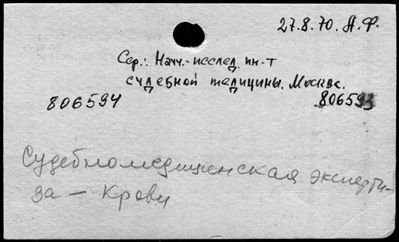 27.8.70. А.Ф.
Сер.: Научн.-исслед. ин-т
судебной медицины. Москва.
806594 806593
Судебномедицинская эксперти-
за — Крови